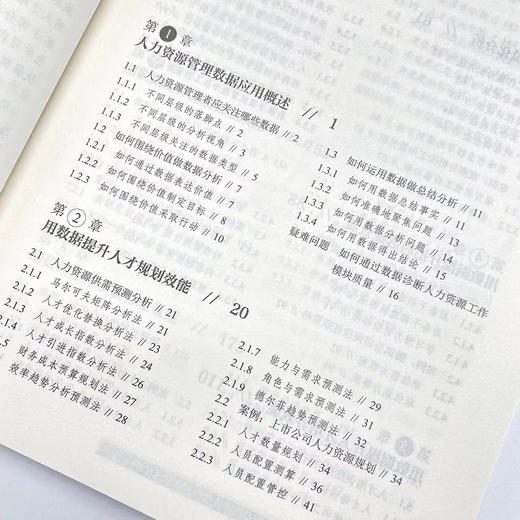 第1章
人力资源管理数据应用概述 // 1
1.1 人力资源管理者应关注哪些数据 // 2
1.1.1 不同层级的落脚点 // 2
1.1.2 不同层级的分析视角 // 3
1.1.3 不同层级关注的数据类型 // 5
1.2 如何围绕价值做数据分析 // 7
1.2.1 如何通过数据表达价值 // 7
1.2.2 如何围绕价值制定目标 // 8
1.2.3 如何围绕价值采取行动 // 10
1.3 如何运用数据做总结分析 // 11
1.3.1 如何用数据总结事实 // 11
1.3.2 如何准确地聚焦问题 // 13
1.3.3 如何用数据分析问题 // 14
1.3.4 如何用数据得出结论 // 15
疑难问题 如何通过数据诊断人力资源工作
模块质量 // 16
第2章
用数据提升人才规划效能 // 20
2.1 人力资源供需预测分析 // 21
2.1.1 马尔可夫矩阵分析法 // 21
2.1.2 人才优化替换分析法 // 21
2.1.3 人才成长指数分析法 // 23
2.1.4 人才引进指数分析法 // 24
.5 财务成本预算规划法 // 26
效率趋势分析预测法 // 27
28
2.1.7 能力与需求预测法 // 29
2.1.8 角色与需求预测法 // 31
2.1.9 德尔菲趋势预测法 // 32
2.2 案例：上市公司人力资源规划 // 34
2.2.1 人才数量规划 // 34
2.2.2 人员配置测算 // 36
2.2.3 人员配置管控 // 41